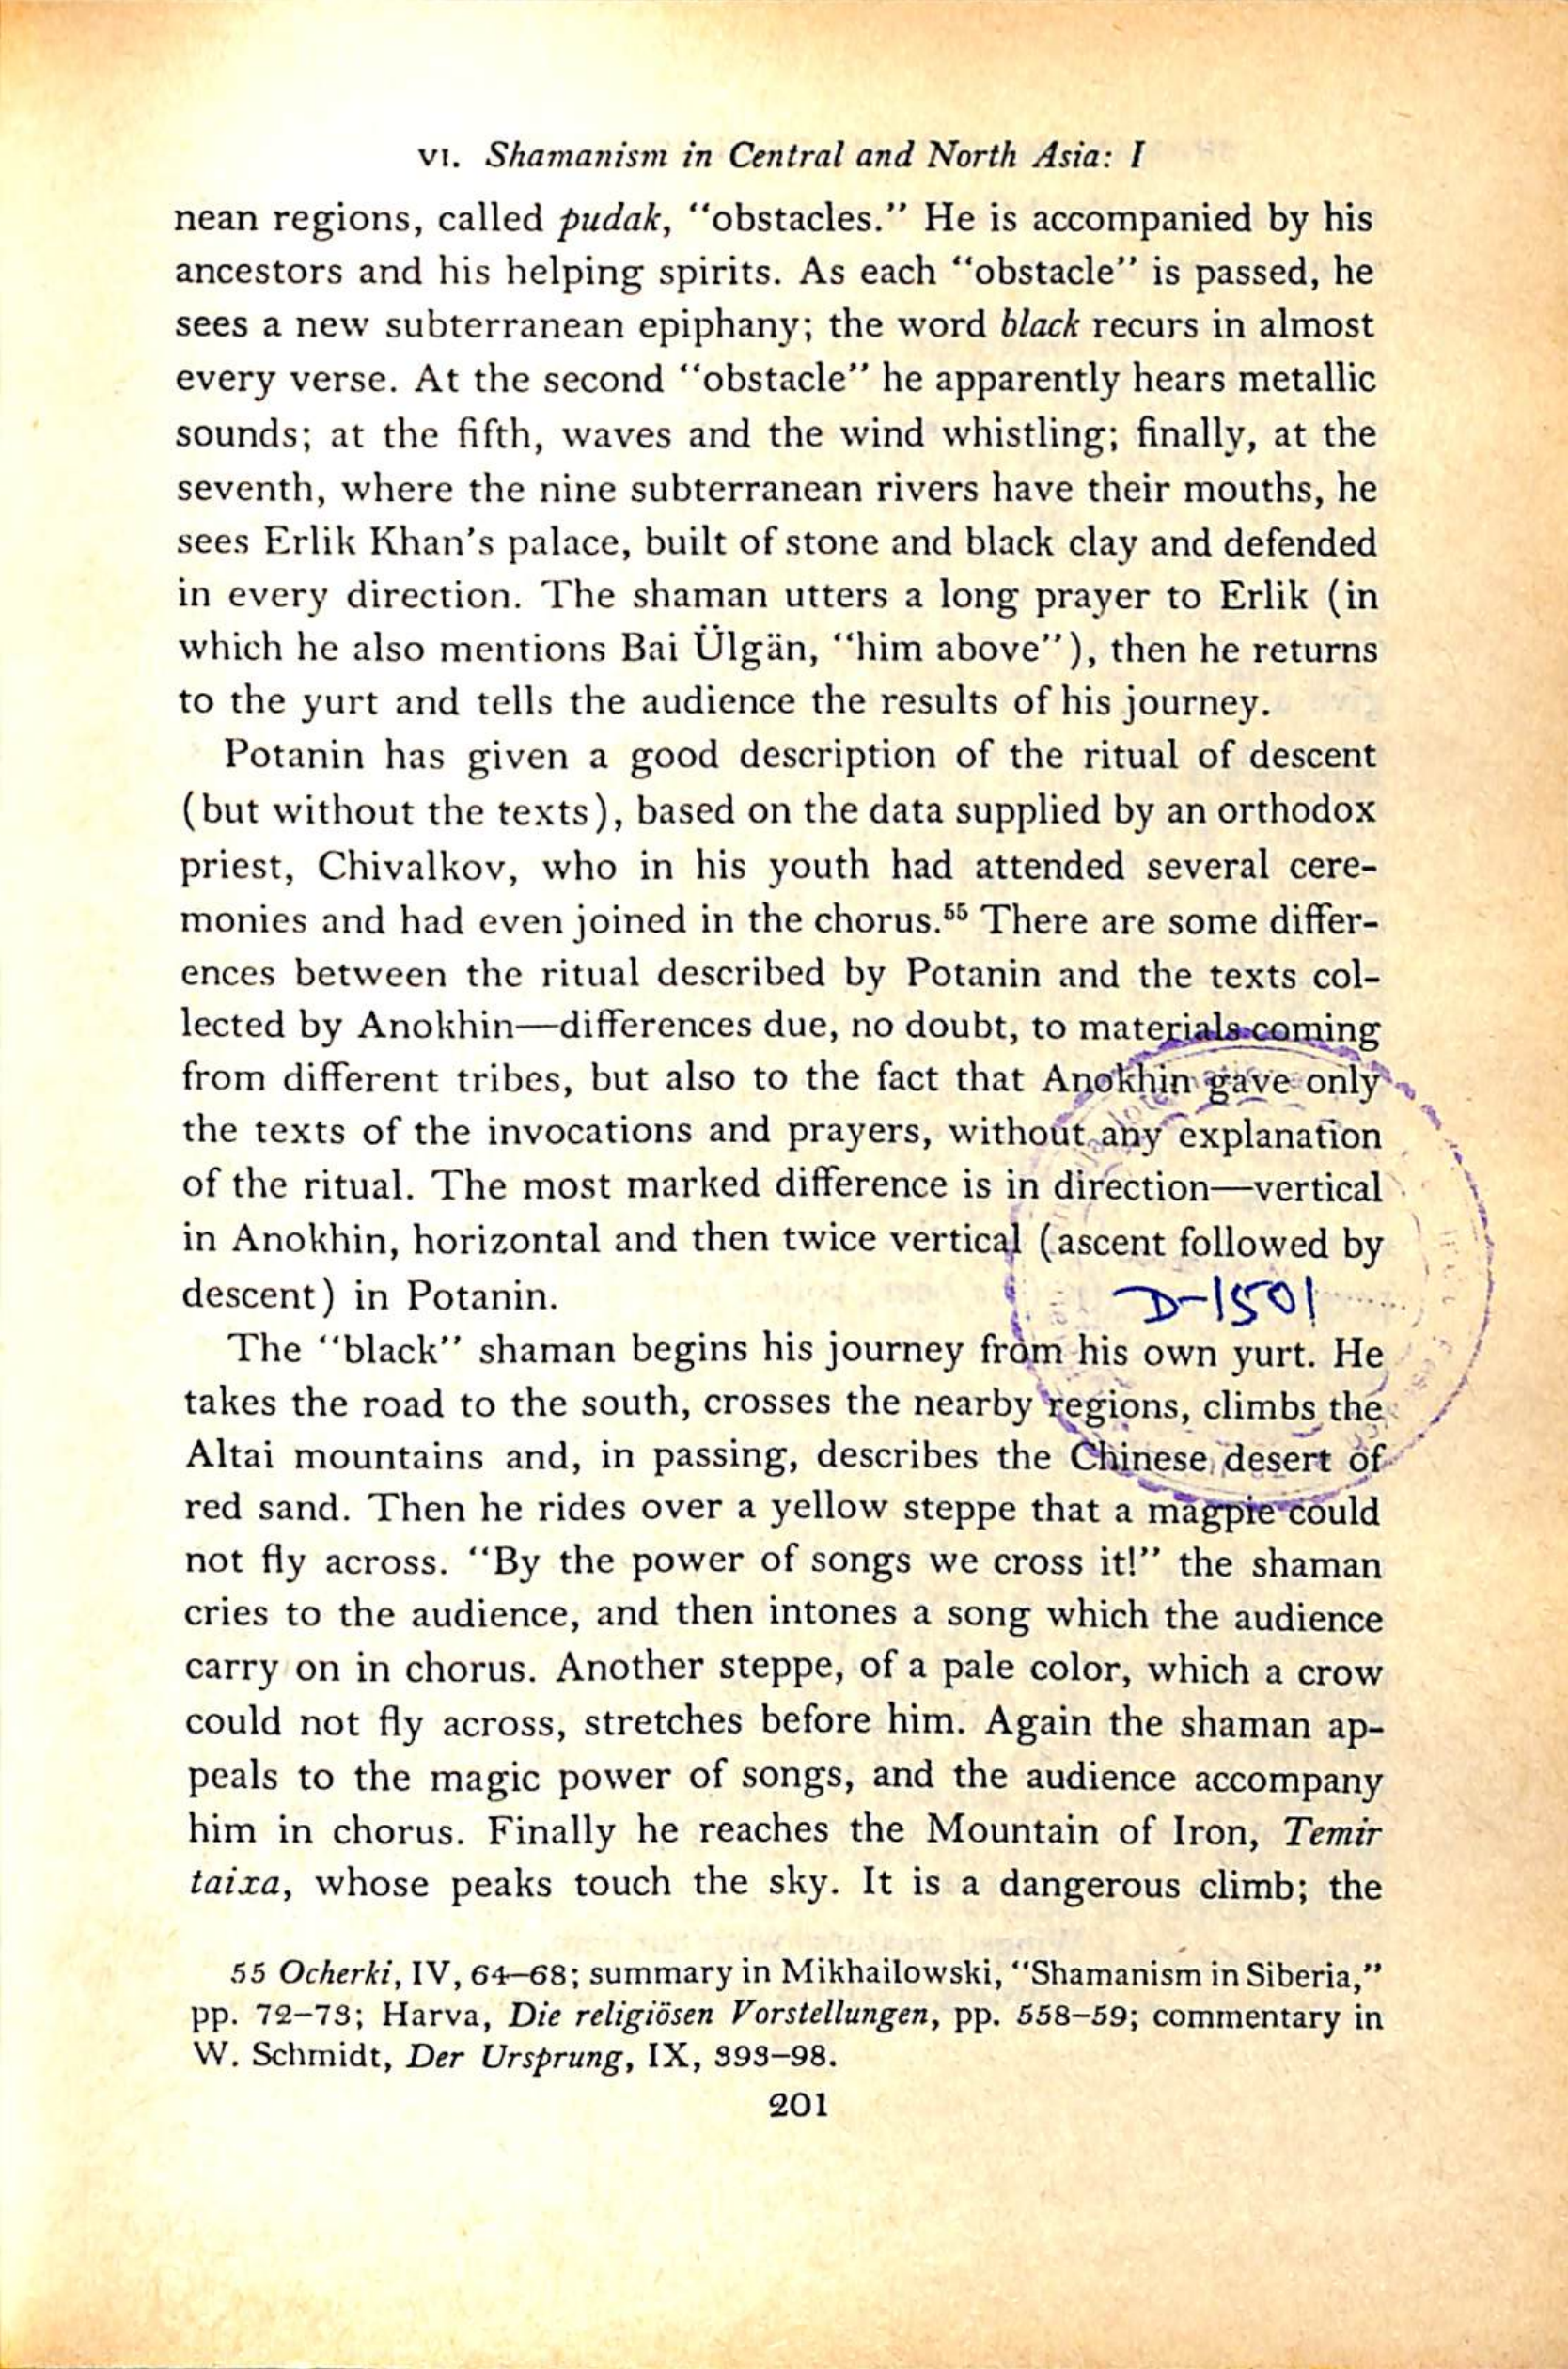 VI. Shamanism in Central and North Asia: I
nean regions, called pudak, “obstacles.” He is accompanied by his
ancestors and his helping spirits. As each “obstacle” is passed, he
sees a new subterranean epiphany; the word black recurs in almost
every verse. At the second “obstacle” he apparently hears metallic
sounds; at the fifth, waves and the wind whistling; finally, at the
seventh, where the nine subterranean rivers have their mouths, he
sees Erlik Khan's palace, built of stone and black clay and defended
in every direction. The shaman utters a long prayer to Erlik (in
which he also mentions Bai Ülgän, “him above”), then he returns
to the yurt and tells the audience the results of his journey.
Potanin has given a good description of the ritual of descent
(but without the texts), based on the data supplied by an orthodox
priest, Chivalkov, who in his youth had attended several cere-
monies and had even joined in the chorus.55 There are some differ-
ences between the ritual described by Potanin and the texts col-
lected by Anokhin—differences due, no doubt, to materials coming
from different tribes, but also to the fact that Anokhin gave only
the texts of the invocations and prayers, without any explanation
of the ritual. The most marked difference is in direction—vertical
in Anokhin, horizontal and then twice vertical (ascent followed by
descent) in Potanin.
D-1501
The “black” shaman begins his journey from his own yurt. He
takes the road to the south, crosses the nearby regions, climbs the
Altai mountains and, in passing, describes the Chinese desert of
red sand. Then he rides over a yellow steppe that a magpie could
not fly across. “By the power of songs we cross it!” the shaman
cries to the audience, and then intones a song which the audience
carry on in chorus. Another steppe, of a pale color, which a crow
could not fly across, stretches before him. Again the shaman ap-
peals to the magic power of songs, and the audience accompany
him in chorus. Finally he reaches the Mountain of Iron, Temir
taixa, whose peaks touch the sky. It is a dangerous climb; the
55 Ocherki, IV, 64–68; summary in Mikhailowski, “Shamanism in Siberia,”
pp. 72–73; Harva, Die religiösen Vorstellungen, pp. 558–59; commentary in
W. Schmidt, Der Ursprung, IX, 393–98.
201